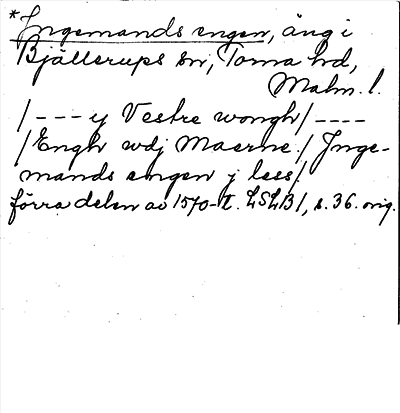 *Ingemands engen, äng i
Bjällerups sn, Torna hd,
Malm. l.
/--- y Vestre wongh/----
/Engh wdj Maerne./ Inge-
mands engen j less/.
förra delen av 1570-t. LSLB1, s. 36. orig.